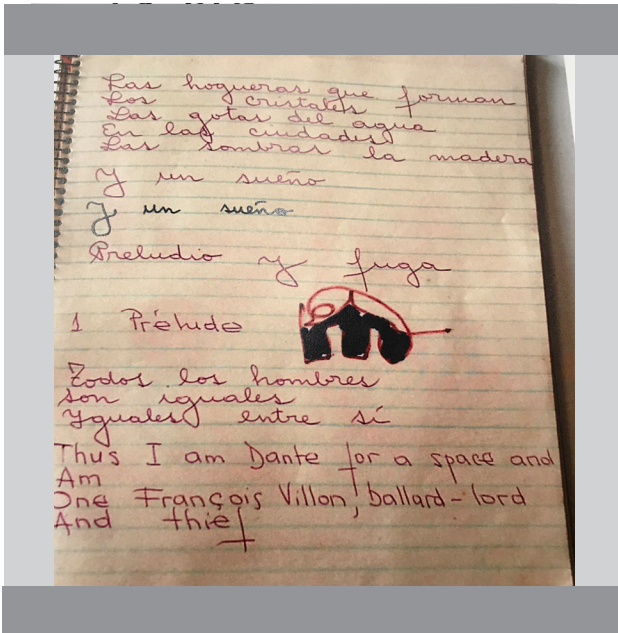 Las hogueras que forman
Los cristales
Las gotas del agua
En las ciudades
Las sombras la madera
Y un sueño
Y un sueño
Preludio y fuga
1 Prélude
Todos los hombres
son iguales
Yguales entre sí
Thus I am Dante for a space and
Am
One François Villon, ballard-lord
And thief